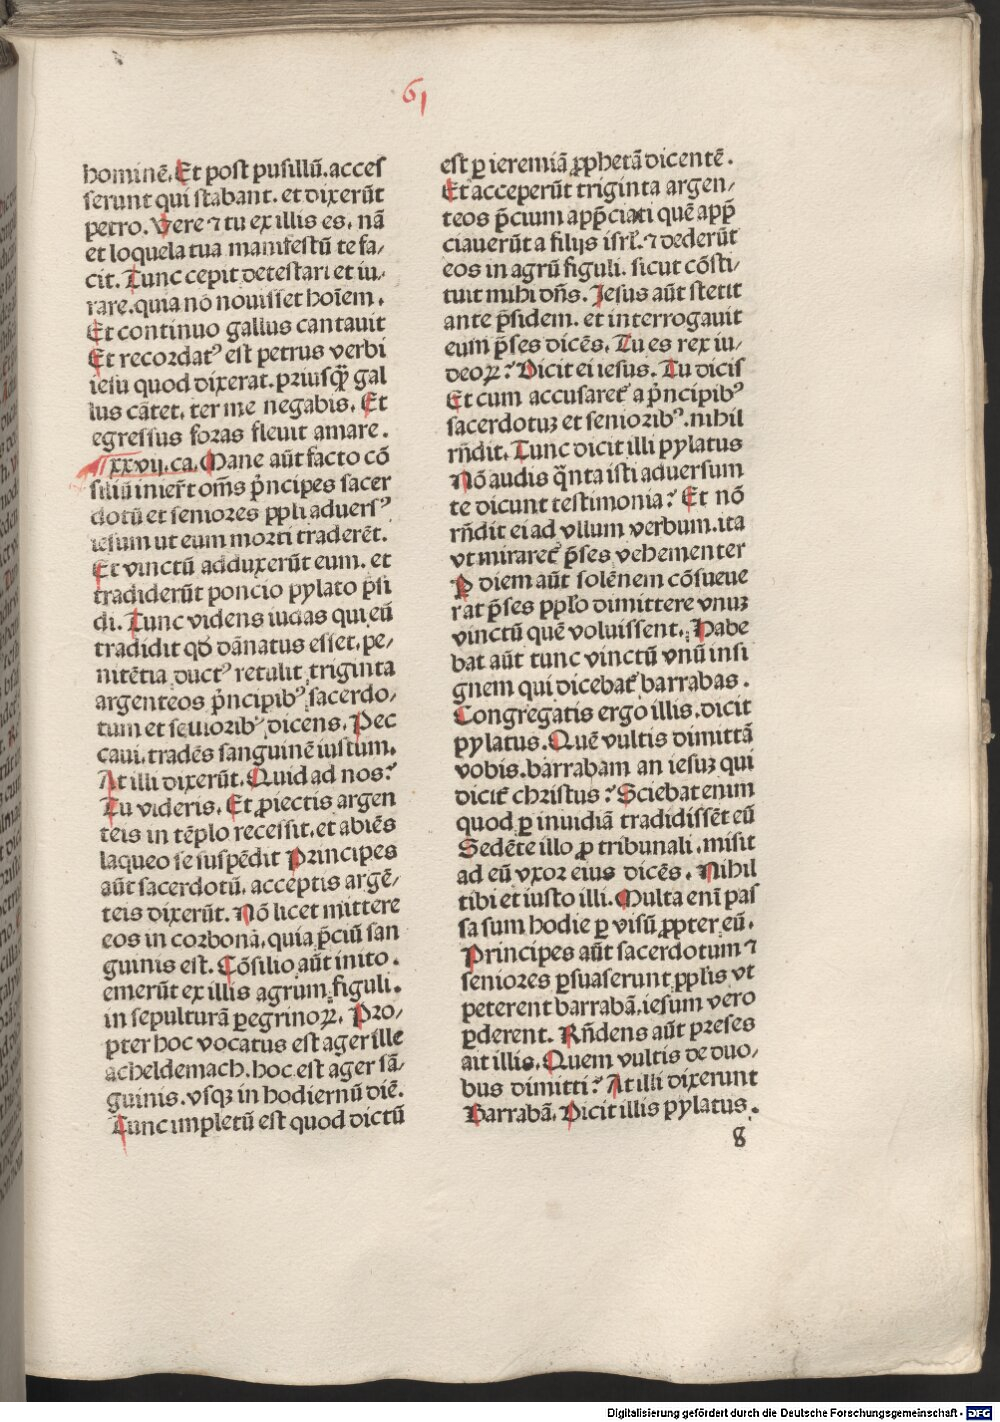 61
hominē. Et post pusillū. acces
serunt qui stabant. et dixerūt
petro. Vere ⁊ tu ex illis es. nā
et loquela tua manifestū te fa-
cit. Tunc cepit detestari et iu-
rare. quia nō nouisset hoīem.
Et continuo gallus cantauit
Et recordatꝰ est petrus verbi
iesu quod dixerat. priusqꝫ̄ gal
lus cātet. ter me negabis. Et
egressus foras fleuit amare.
xxvij. ca. Mane aūt facto cō
siliū inierūt om̄s p̄ncipes sacer
dotū et seniores ppli aduersꝰ
iesum ut eum morti traderēt.
Et vinctū adduxerūt eum. et
tradiderūt poncio pylato p̄si
di. Tunc videns iudas qui eū
tradidit qđ dānatus esset. pe-
nitētia ductꝰ retulit triginta
argenteos p̄ncipibꝰ sacerdo-
tum et senioribꝰ dicens. Pec
caui. tradēs sanguinē iustum.
At illi dixerūt. Quid ad nos?
Tu videris. Et ꝓiectis argen
teis in tēplo recessit. et abiēs
laqueo se suspēdit Principes
aūt sacerdotū. acceptis argē-
teis dixerūt. Nō licet mittere
eos in corbonā. quia p̄ciū san
guinis est. Cōsilio aūt inito.
emerūt ex illis agrum figuli.
in sepulturā ꝑegrinoꝝ. Pro-
pter hoc vocatus est ager ille
acheldemach. hoc est ager sā-
guinis. vsqꝫ in hodiernū diē.
Tunc impletū est quod dictū
est ꝑ ieremiā ꝓphetā dicentē.
Et acceperūt triginta argen-
teos p̄cium app̄ciati quē app̄
ciauerūt a filijs isrl̄. ⁊ dederūt
eos in agrū figuli. sicut cōsti-
tuit mihi dn̄s. Jesus aūt stetit
ante p̄sidem. et interrogauit
eum p̄ses dicēs. Tu es rex iu-
deoꝝ? Dicit ei iesus. Tu dicis
Et cum accusaret̄ a p̄ncipibꝰ
sacerdotuꝫ et senioribꝰ. nihil
rn̄dit. Tunc dicit illi pylatus
Nō audis q̄nta isti aduersum
te dicunt testimonia? Et nō
rn̄dit ei ad vllum verbum. ita
vt miraret̄ p̄ses vehementer
P diem aūt solēnem cōsueue
rat p̄ses pplo dimittere vnuꝫ
vinctū quē voluissent. Habe
bat aūt tunc vinctū vnū insi
gnem qui dicebat̄ barrabas.
Congregatis ergo illis. dicit
pylatus. Quē vultis dimittā
vobis. barrabam an iesuꝫ qui
dicit̄ christus? Sciebat enim
quod ꝑ inuidiā tradidissēt eū
Sedēte illo ꝓ tribunali. misit
ad eū vxor eius dicēs. Nihil
tibi et iusto illi. Multa enī pas
sa sum hodie ꝑ visū ꝓpter eū.
Principes aūt sacerdotum ⁊
seniores ꝑsuaserunt pplis vt
peterent barrabā. iesum vero
ꝑderent. Rn̄dens aūt preses
ait illis. Quem vultis de duo-
bus dimitti? At illi dixerunt
Barrabā. Dicit illis pylatus.
8
Digitalisierung gefördert durch die Deutsche Forschungsgemeinschaft - DFG